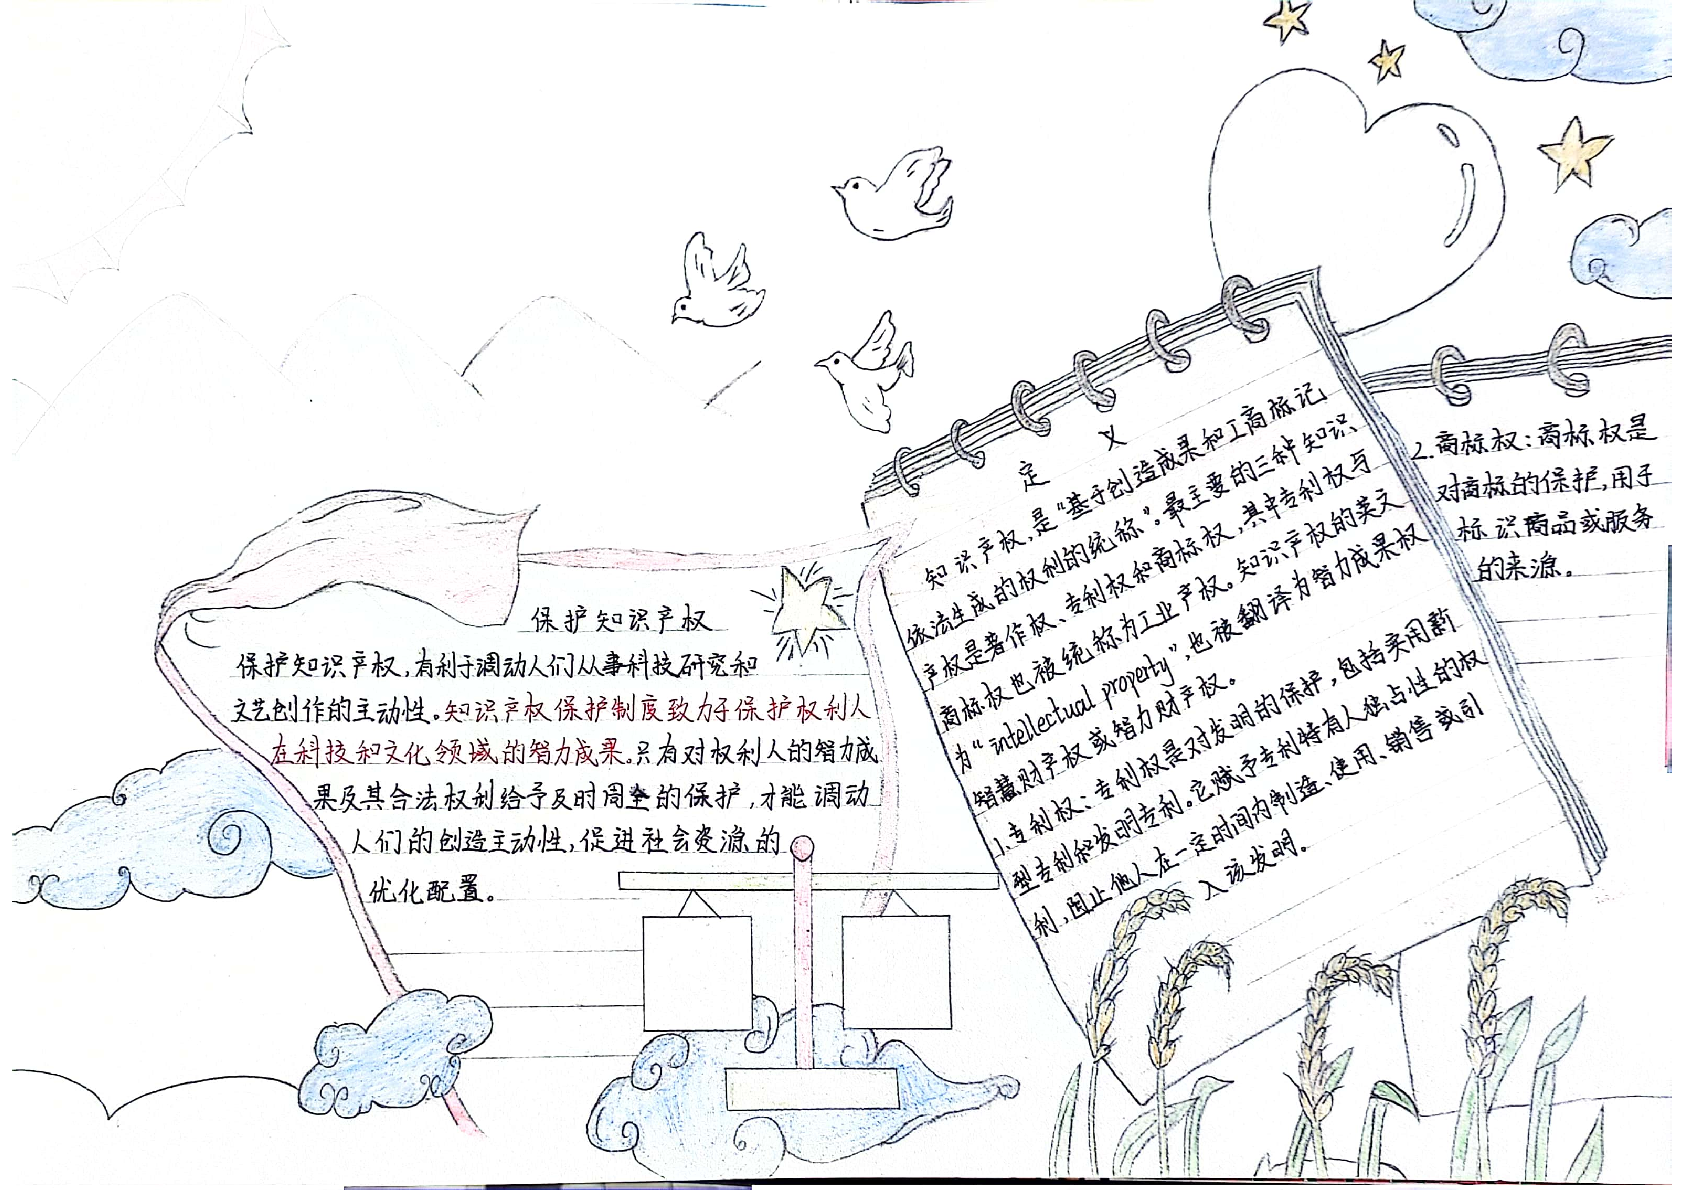 保护知识产权
保护知识产权，有利于调动人们从事科技研究和
文艺创作的主动性。知识产权保护制度致力于保护权利人
在科技和文化领域的智力成果。只有对权利人的智力成
果及其合法权利给予及时周全的保护，才能调动
人们的创造主动性，促进社会资源的
优化配置。
定 义
知识产权，是“基于创造成果和工商标记
依法生成的权利的统称”。最主要的三种知识
产权是著作权、专利权和商标权，其中专利权与
商标权也被统称为工业产权。知识产权的英文
为“intellectual property”，也被翻译为智力成果权、
智慧财产权或智力财产权。
1.专利权：专利权是对发明的保护，包括实用新
型专利和发明专利。它赋予专利特有人独占性的权
利，阻止他人在一定时间内制造、使用、销售或引
入该发明。
2.商标权：商标权是
对商标的保护，用于
标识商品或服务
的来源。